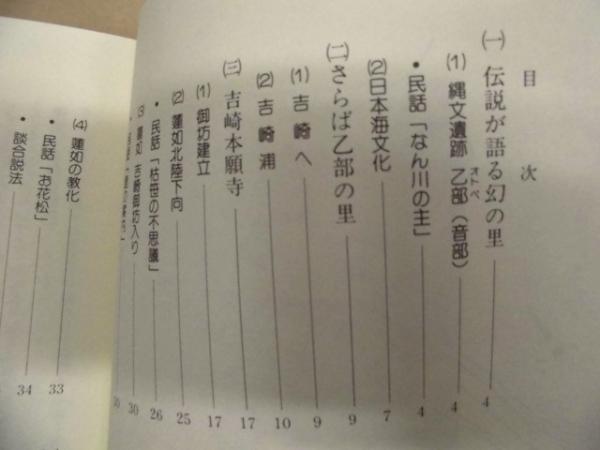 目次
㈠ 伝説が語る幻の里 4
⑴ 縄文遺跡 乙部（音部） 4
オトベ
・民話「なん川の主」 4
⑵ 日本海文化 7
㈡ さらば乙部の里 9
⑴ 吉崎へ 9
⑵ 吉崎浦 10
㈢ 吉崎本願寺 17
⑴ 御坊建立 17
⑵ 蓮如北陸下向 25
・民話「枯笹の不思議」 26
⑶ 蓮如 吉崎御坊入り 30
⑷ 蓮如の教化 33
・民話「お花松」 34
・談合説法